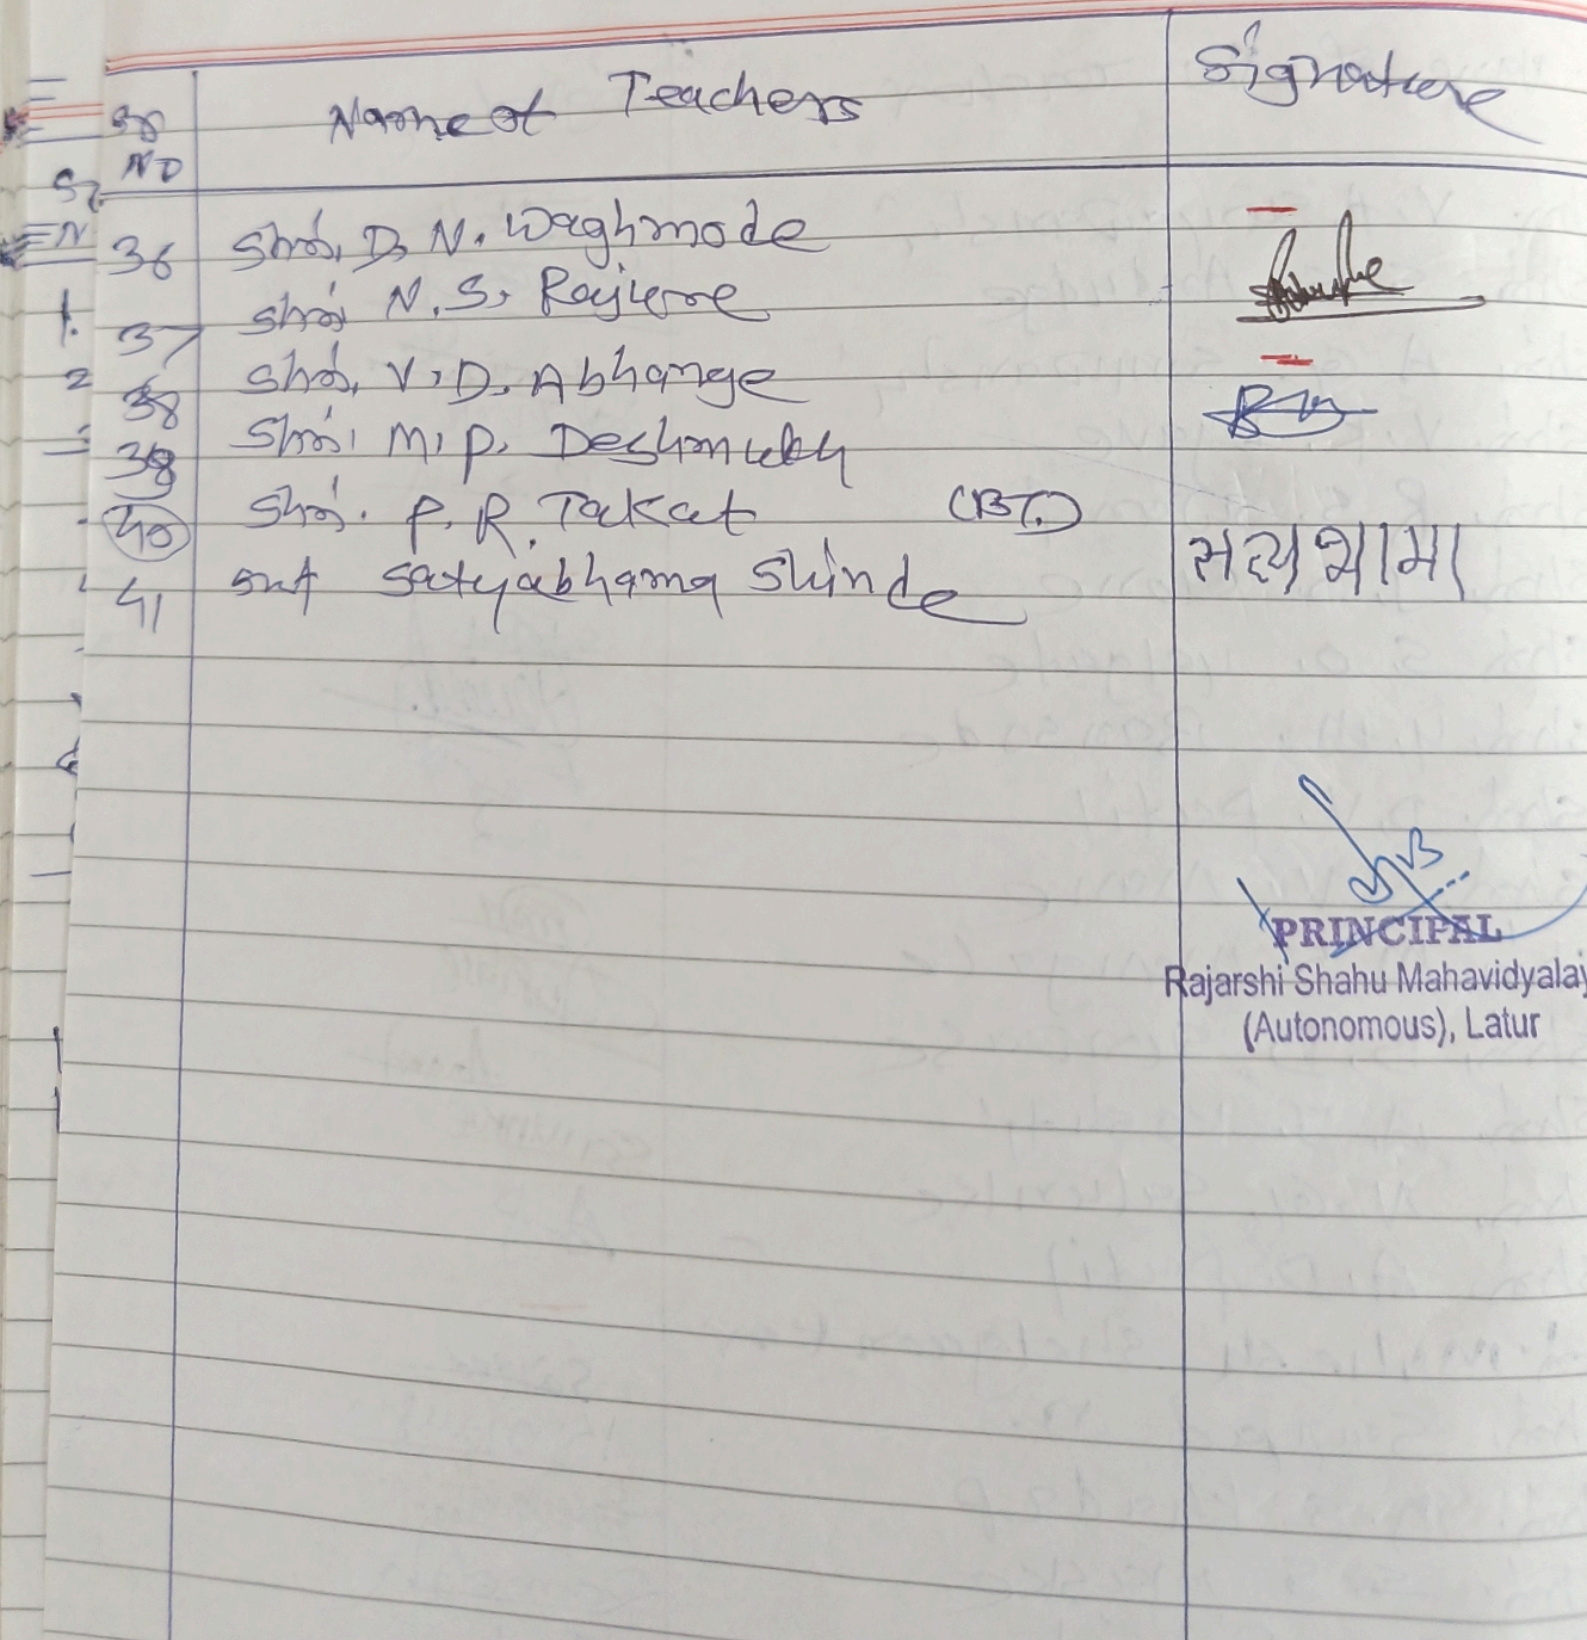 Sr Name of Teachers Signature
No
36 Shri. D. N. Waghmode
37 Shri N. S. Rajure
38 Shri. V. D. Abhange
39 Shri. M. P. Deshmukh
40 Shri. P. R. Takat (BT.)
41 Smt Satyabhama Shinde सत्यभामा
PRINCIPAL
Rajarshi Shahu Mahavidyalay
(Autonomous), Latur